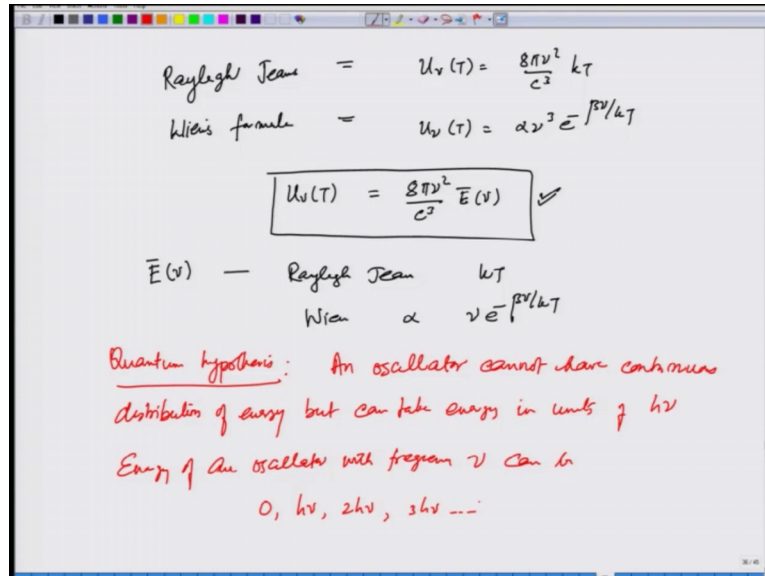 Rayleigh Jeans = Uν(T) = 8πν²/c³ kT
Wien's formula = Uν(T) = αν³ e^-βν/kT
Uν(T) = 8πν²/c³ E̅(ν) ✓
E̅(ν) — Rayleigh Jean kT
Wien α ν e^-βν/kT
Quantum hypothesis: An oscallator cannot have continuous
distribution of energy but can take energy in units of hν
Energy of an oscallator with frequen ν can be
0, hν, 2hν, 3hν ----
36/45